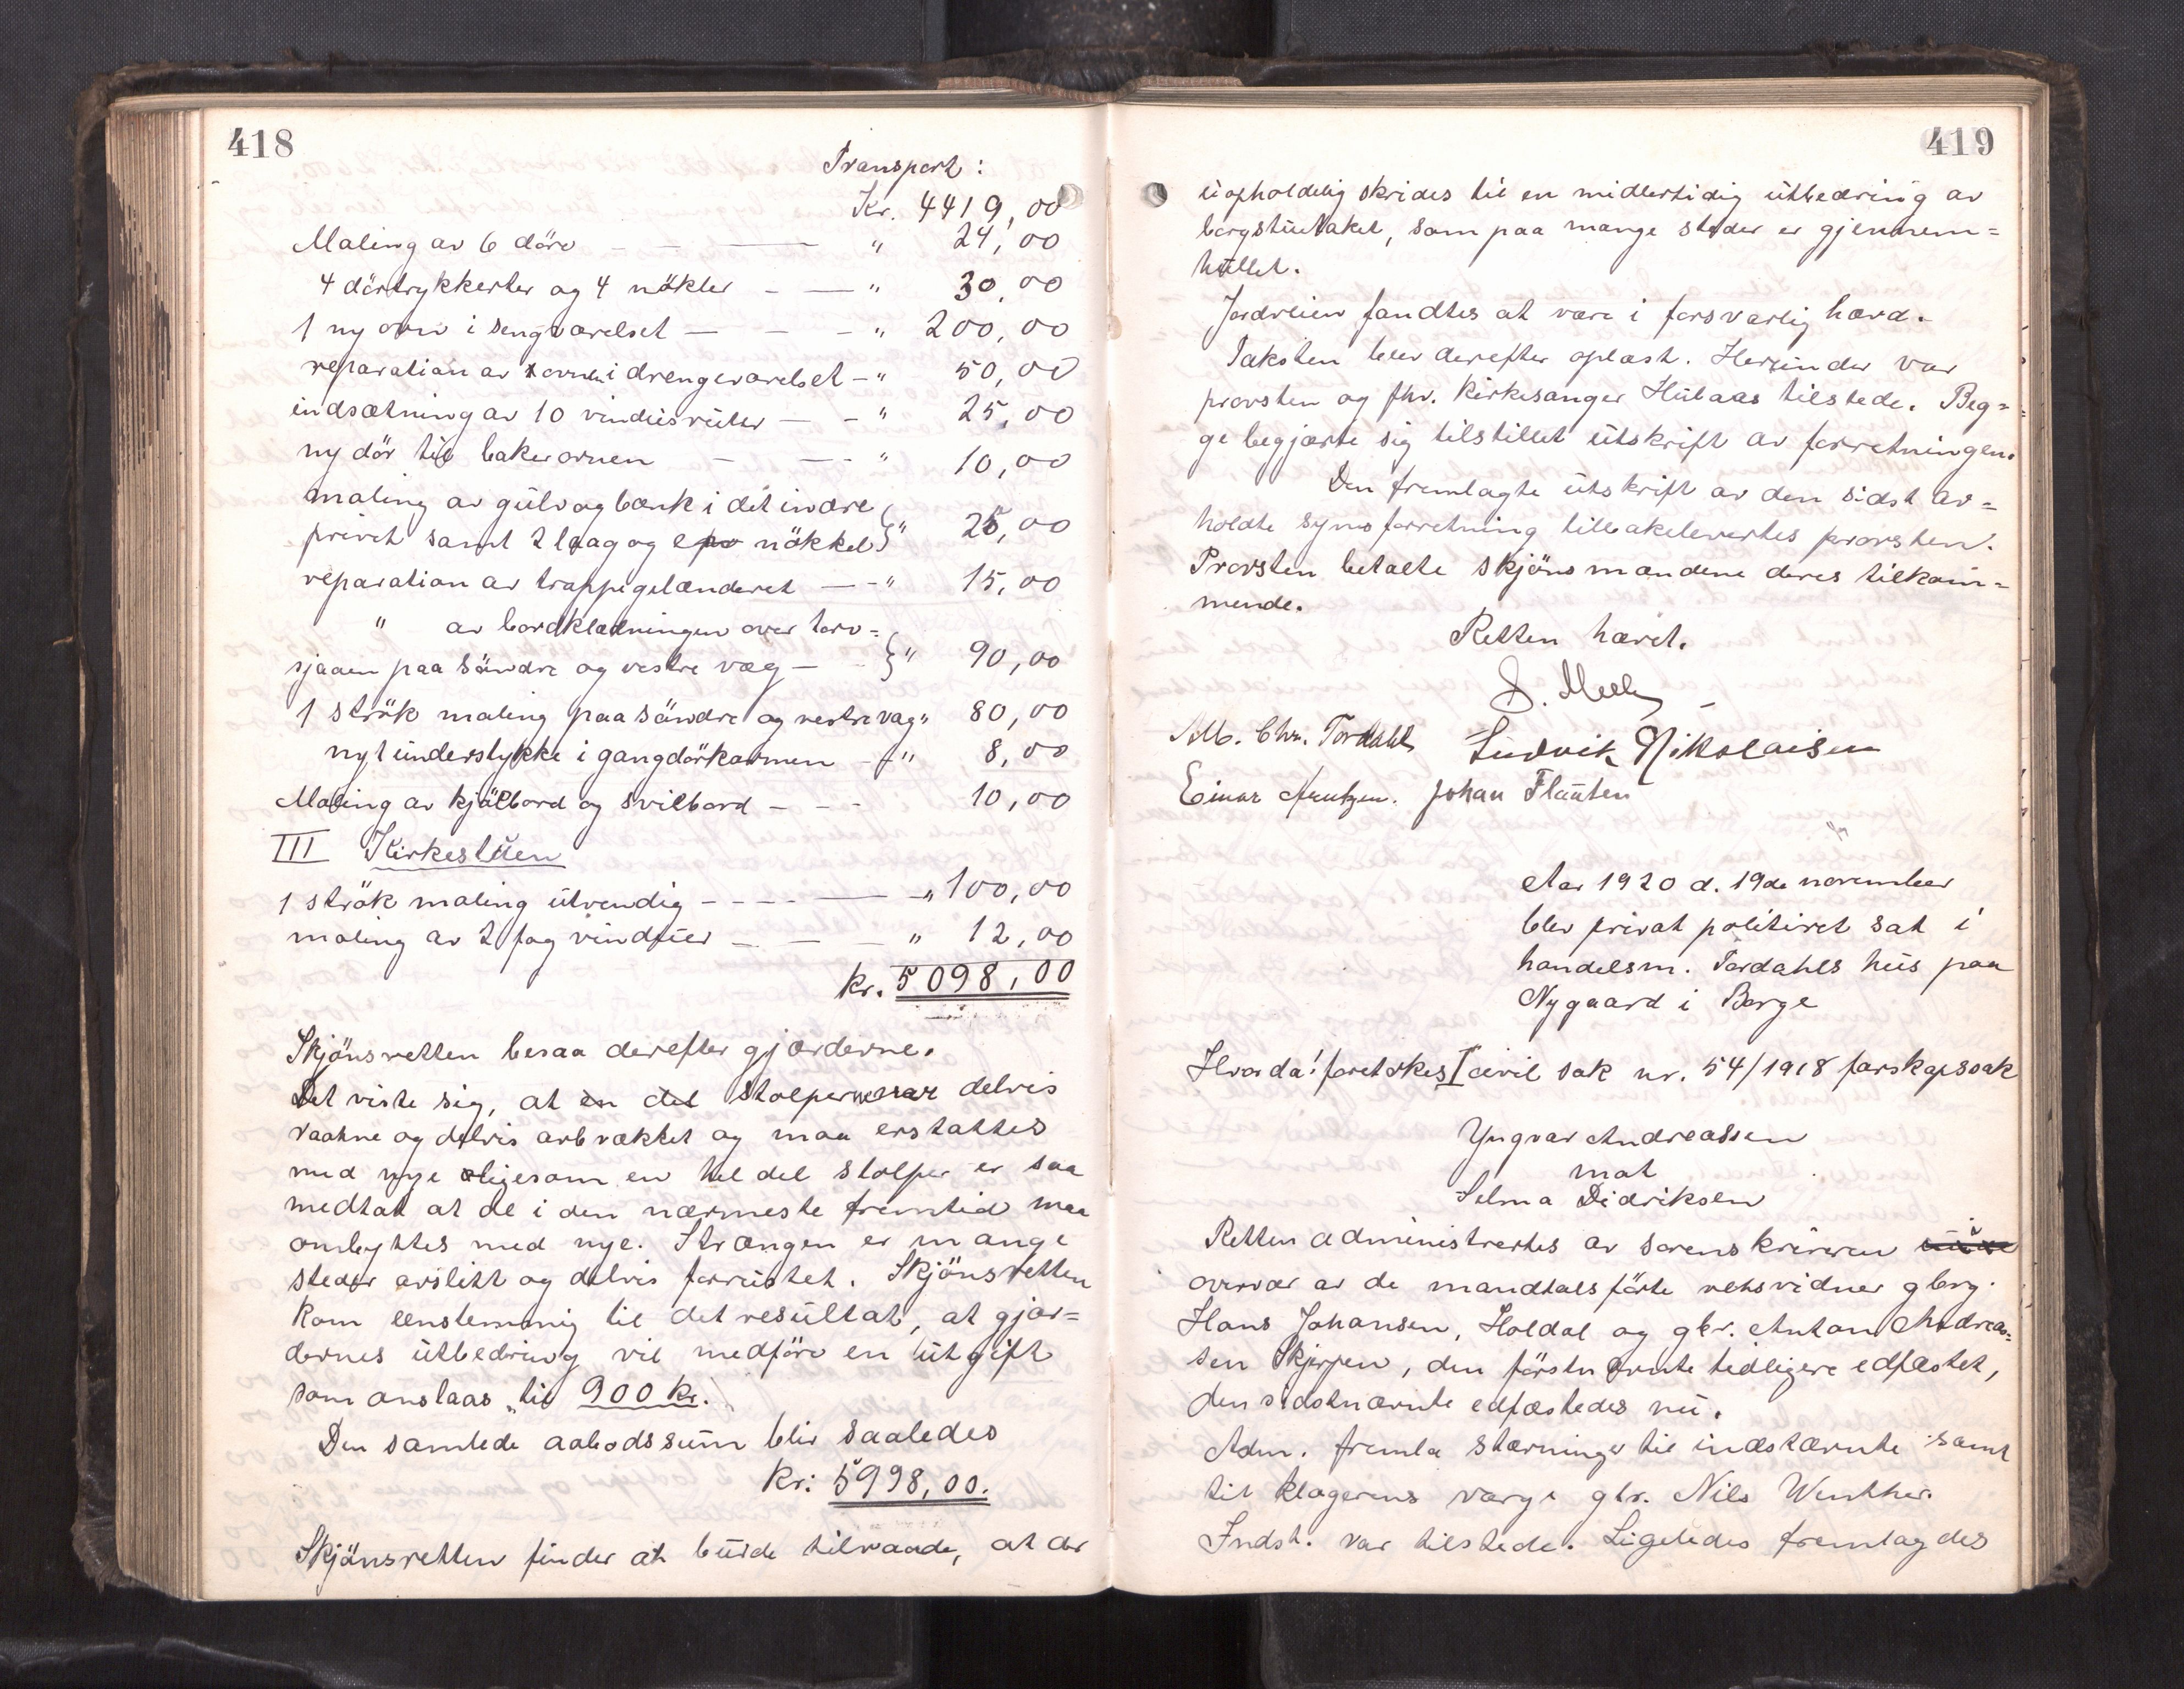 418
Transport:
Kr. 4419,00
Maling av 6 döre — — — " 24,00
4 dörtrykkerter og 4 nökler — — " 30,00
1 ny ovn i sengværelset — — - " 200,00
reparation av ovnen i drengeværelset - " 50,00
indsætning av 10 vindusruter — - " 25,00
ny dör til bakerovnen — — - " 10,00
maling av gulv og bænk i det indre
privet samt 2 laag og nökkel } " 25,00
reparation av trappegelænderet — - " 15,00
" av bordklædningen over torv=
sjaaen paa söndre og vestre væg — } " 90,00
1 strök maling paa söndre og vestre væg " 80,00
nyt understykke i gangdörkarmen - " 8,00
Maling av kjölbord og svilbord - - - 10,00
III Kirkestuen
1 strök maling utvendig - - - - — " 100,00
maling av 2 fag vinduer — — — " 12,00
kr. 5098,00
Skjönsretten besaa derefter gjærderne.
Det viste sig, at en del stolper var delvis
raatne og delvis avbrækket og maa erstattes
med nye ligesom en hel del stolper er saa
medtat at de i den nærmeste fremtid maa
ombyttes med nye. Strængen er mange
steder avslitt og delvis forrustet. Skjönsretten
kom eenstemmig til det resultat, at gjær=
dernes utbedring vil medföre en utgift
som anslaaes til 900 kr.
Den samlede aabodssum blir saaledes
kr: 5998,00.
Skjönsretten finder at burde tilraade, at der
419
uopholdelig skrides til en midlertidig utbedring av
borgstutaket, som paa mange steder er gjennem=
hullet.
Jordveien fandtes at være i forsvarlig hævd.
Taksten blev derefter oplæst. Herunder var
provsten og fhv. kirkesanger Hulaas tilstede. Beg=
ge begjærte sig tilstillet utskrift av forretningen.
Den fremlagte utskrift av den sidst av=
holdte synsforretning tilbakelevertes provsten.
Provsten betalte skjönsmændene deres tilkom=
mende.
Retten hævet.
Alb. Chr. Tordahl Ludvik Nikolaisen
Einar Arntzen. Johan Flauten
Aar 1920 d. 19de november
blev privat politiret sat i
handelsm. Tordahls hus paa
Nygaard i Borge
Hvorda! foretokes I civil sak nr. 54/1918 farskapssak
Yngvar Andreassen
mot
Selma Didriksen
Retten administrertes av sorenskriveren i
overvær av de mandtalsförte retsvidner gbrg.
Hans Johansen, Holdal og gbr. Anton Andreas=
sen Skjerpen, den förstnævnte tidligere edfæstet,
den sidstnævnte edfæstedes nu.
Adm. fremla stævninger til indstævnte samt
til klagerens værge gbr. Nils Winther.
Indst. var tilstede. Ligeledes fremlagdes